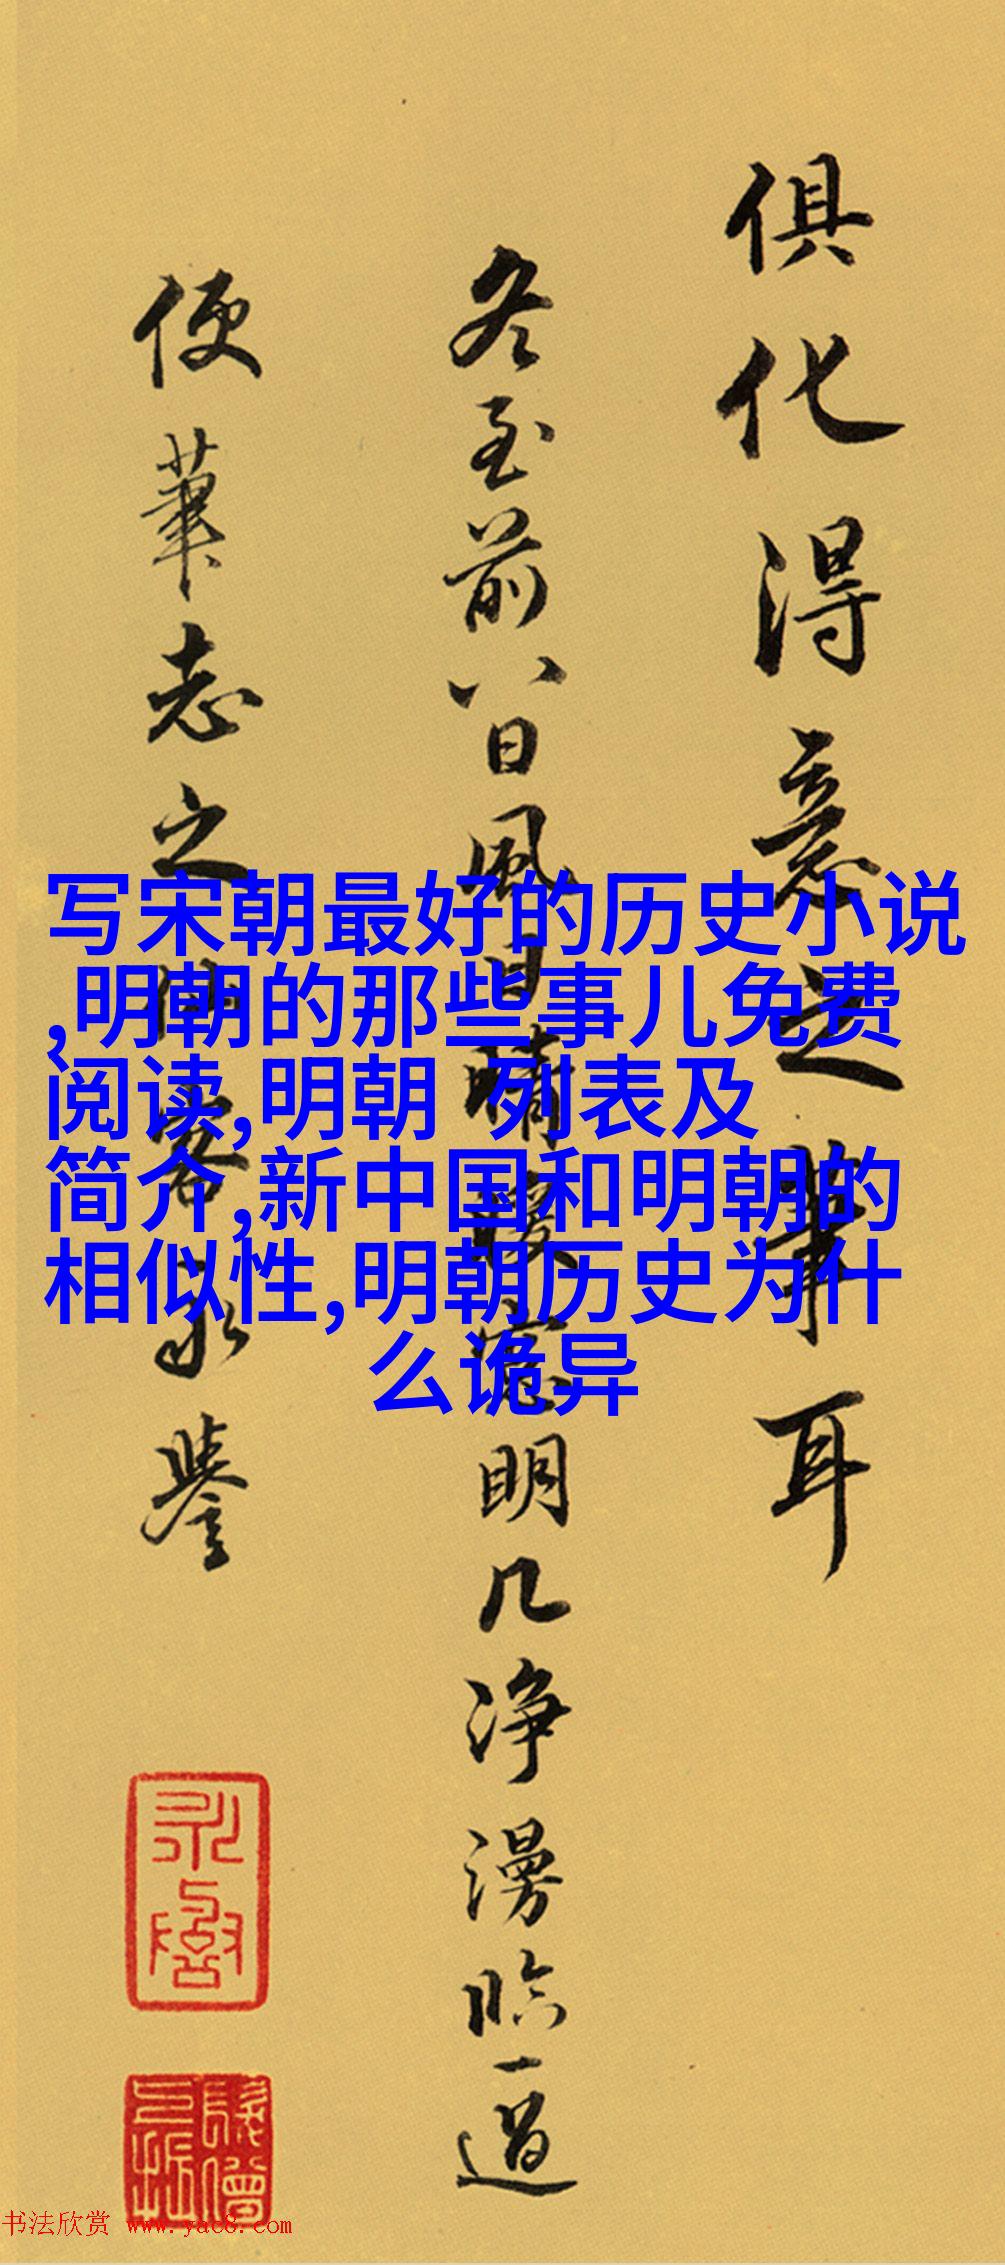 俱化得意之筆耳
冬至前八日風日晴暖窓明几淨漫臨一過
便筆志之客永譽
写宋朝最好的历史小说
,明朝的那些事儿免费
阅读,明朝 列表及
简介,新中国和明朝的
相似性,明朝历史为什
么诡异
书法欣赏 www.yac8.com